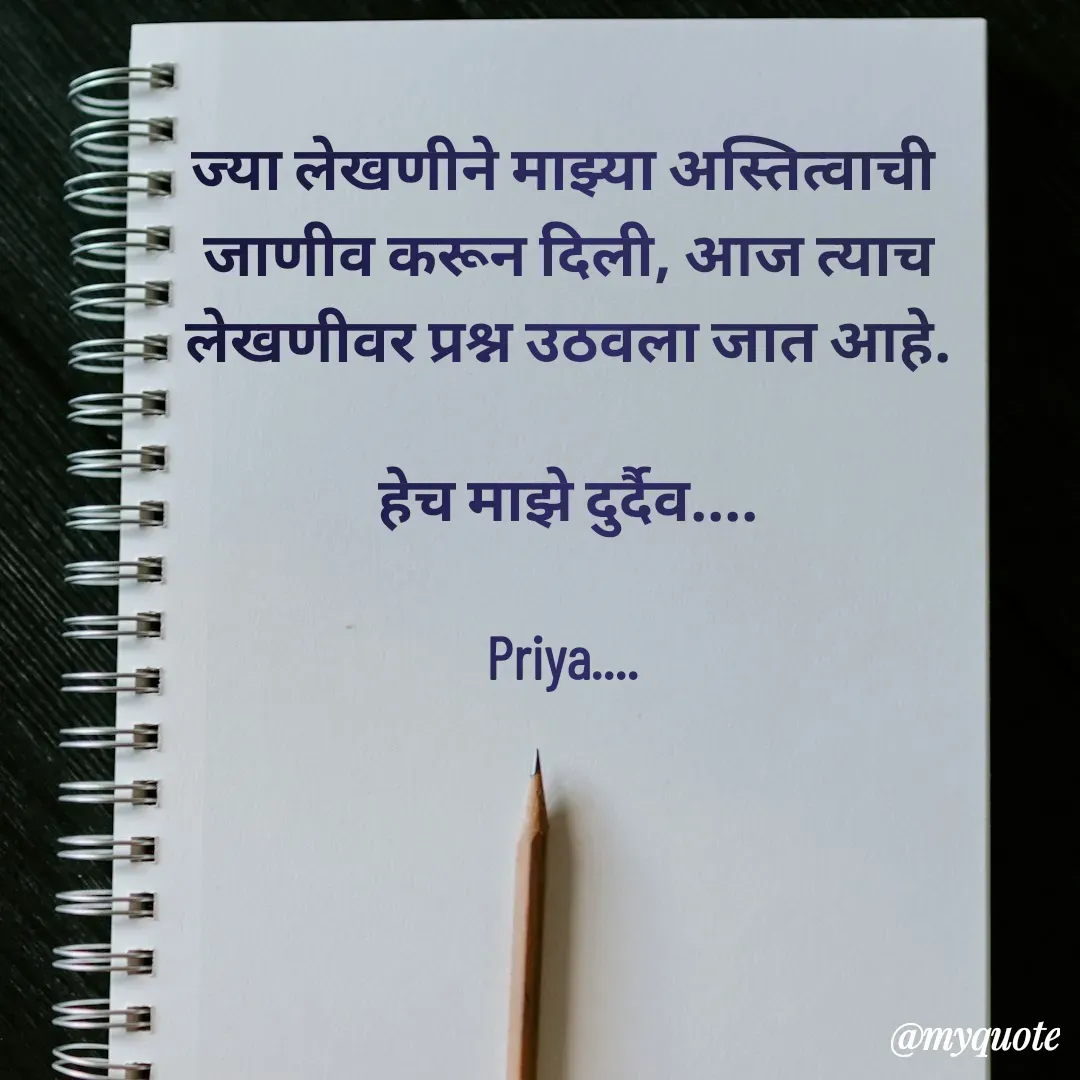 ज्या लेखणीने माझ्या अस्तित्वाची
जाणीव करून दिली, आज त्याच
लेखणीवर प्रश्न उठवला जात आहे.
हेच माझे दुर्दैव....
Priya....
@myquote